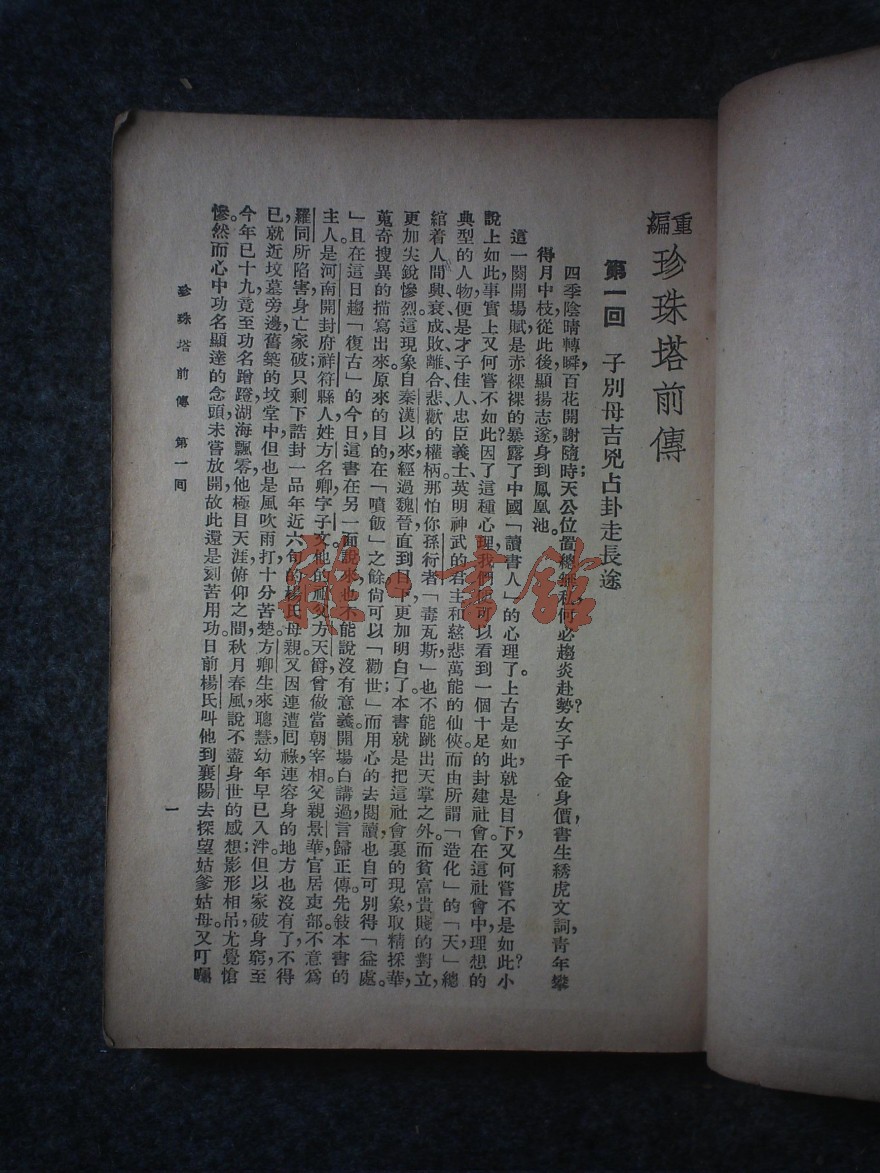 重編 珍珠塔前傳
第一回 子別母吉兇占卦走長途
四季陰晴轉瞬,百花開謝隨時,天公位置總無私,何必趨炎赴勢?女子千金身價,書生綉虎文詞,青年攀
得月中枝,從此後顯揚志遂,身到鳳凰池。
這一闋開場賦是赤裸裸的暴露了中國「讀書人」的心理了。上古是如此,就是目下,又何嘗不是如此?小
說上如此,事實上又何嘗不如此?因了這種心理,我們便可以看到一個十足的封建社會。在這社會中,理想的
典型的人物,便是才子、佳人、忠臣、義士、英明神武的君主和慈悲萬能的仙俠。而由所謂「造化」的「天」,總
綰着人間興衰成敗離合悲歡的權柄,那怕你孫行者「毒瓦斯」,也不能跳出天掌之外。而貧富貴賤的對立,
更加尖銳慘烈。這現象自秦漢以來經過魏晉直到目下更加明白了。本書就是把這社會裏的現象取精採華,
蒐奇搜異的描寫出來。原來的目的在「噴飯」之餘,尙可以「勸世」;而用心的去閱讀,也自可別得「益處。
」且在這日趨「復古」的今日,這書在另一面說來,也不能說沒有意義。開場白講過,言歸正傳。先敍本書的
主人是河南開封府祥符縣人,姓方名卿字子文。他的祖父方天爵,曾做當朝宰相。父親景華官居吏部。不意爲
羅同所陷害,身亡家破,只剩下誥封一品年近六旬的楊氏母親。又因連遭囘祿,連容身的地方也沒有了,不得
已,就近坟墓旁邊舊築的坟堂中,但也是風吹雨打,十分苦楚。方卿生來聰慧,幼年早已入泮;但以家破身窮,至
今年已十九,竟至功名蹭蹬,湖海飄零。他極目天涯,俯仰之間,秋月春風,說不盡身世的感想,影形相吊,尤覺愴
慘。然而心中功名顯達的念頭未嘗放開,故此還是刻苦用功。日前楊氏叫他到襄陽去探望姑爹姑母。又叮囑
珍珠塔前傳 第一囘
一
雅·書館